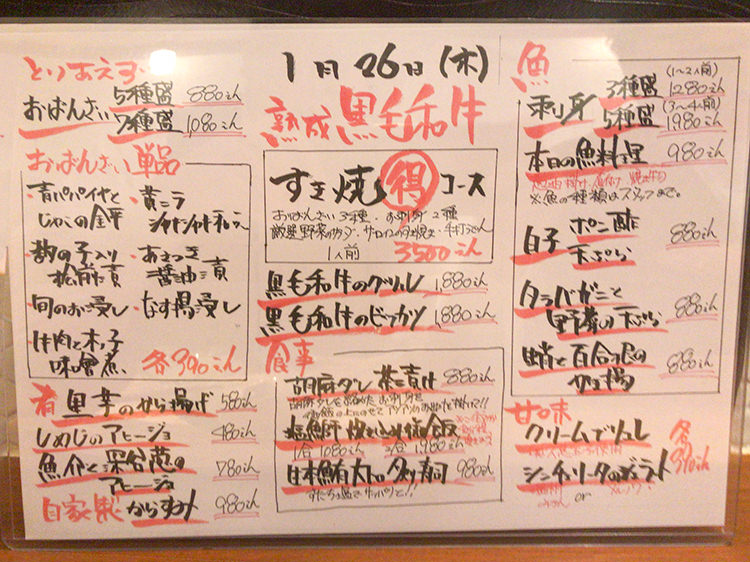 とりあえず
おばんざい
5種盛 880えん
7種盛 1080えん
おばんざい単品
・青パパイヤと
じゃこの金平
・黄ニラ
・数の子入り
松前漬
・あさつき
醤油漬
・旬のお浸し
・なす揚浸し
・牛肉と木の子
味噌煮
各390えん
肴
里芋のから揚げ 580えん
しめじのアヒージョ 480えん
魚介と深谷葱の
アヒージョ 780えん
自家製からすみ 980えん
1月26日(木)
熟成 黒毛和牛
すき焼 得 コース
おばんざい3種・お刺身2種
1人前 3500えん
黒毛和牛のグリル 1,880えん
黒毛和牛のビフカツ 1,880えん
食事
胡麻ダレ 茶漬け 880えん
塩鯖炊き込み御飯
1合 1080えん 2合 1,980えん
日本鮪 980えん
すだちと塩でサッパリと!!
魚
刺身
(1〜2人前)
3種盛 1280えん
(3〜4人前)
5種盛 1980えん
本日の魚料理 980えん
※魚の種類はスタッフまで。
白子
ポン酢
天ぷら
880えん
タラバガニと
野菜の天ぷら 880えん
蛸と百合根の
かき揚 880えん
甘味
クリームブリュレ
各390えん
or